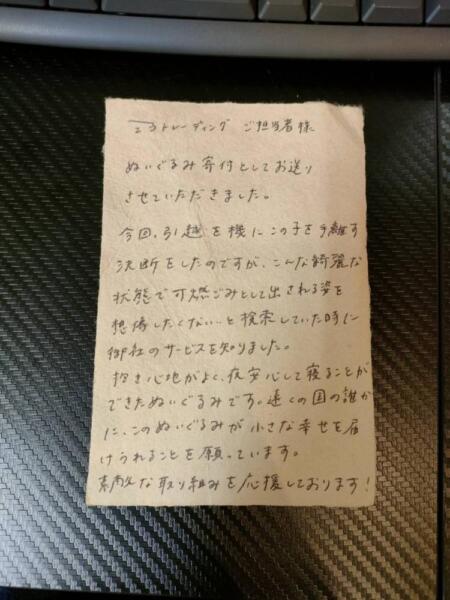 エコトレーディング ご担当者様
ぬいぐるみ寄付としてお送り
させていただきました。
今回、引越を機にこの子を手離す
決断をしたのですが、こんな綺麗な
状態で可燃ごみとして出される姿を
想像したくない…と検索していた時に
御社のサービスを知りました。
抱き心地がよく、夜安心して寝ることが
できたぬいぐるみです。遠くの国の誰か
に、このぬいぐるみが小さな幸せを届
けられることを願っています。
素敵な取り組みを応援しております!